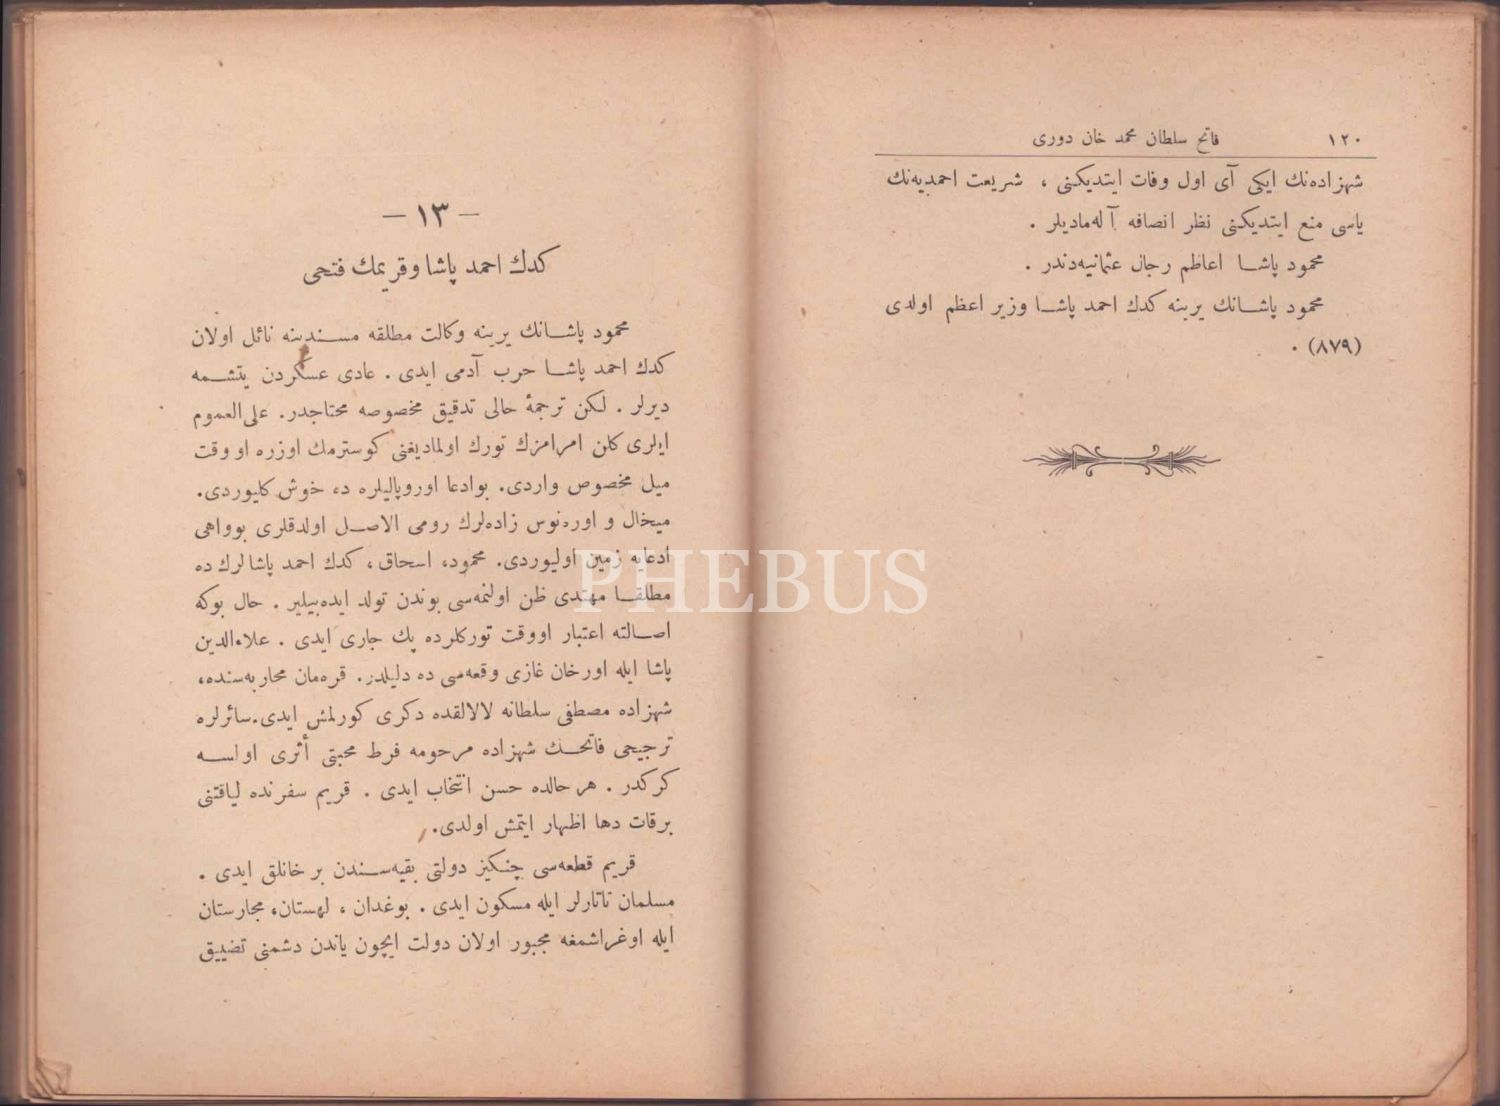 ١٢٠ فاتح سلطان محمد خان دوری
شهزاده‌نك ایكی آی اول وفات ایتدیكنی ، شریعت احمدیه‌نك
یاسی منع ایتدیكنی نظر انصافه آله‌مادیلر .
محمود پاشا اعاظم رجال عثمانیه‌دندر .
محمود پاشانك یرینه كدك احمد پاشا وزیر اعظم اولدی
(٨٧٩) .
— ١٣ —
كدك احمد پاشا وقریمك فتحی
محمود پاشانك یرینه وكالت مطلقه مسندینه نائل اولان
كدك احمد پاشا حرب آدمی ایدی . عادی عسكردن یتشمه
دیرلر . لكن ترجمهٔ حالی تدقیق مخصوصه محتاجدر. علی‌العموم
ایلری كلن امرامزك تورك اولمادیغنی كوسترمك اوزره او وقت
میل مخصوص واردی. بوادعا اوروپالیلره ده خوش كلیوردی.
میخال و اوره‌نوس زاده‌لرك رومی الاصل اولدقلری بوواهی
ادعایه زمین اولیوردی. محمود، اسحاق، كدك احمد پاشالرك ده
مطلقا مهتدی ظن اولنمه‌سی بوندن تولد ایده‌بیلیر . حال بوكه
اصالته اعتبار اووقت توركلرده پك جاری ایدی . علاءالدین
پاشا ایله اورخان غازی وقعه‌سی ده دلیلدر. قره‌مان محاربه‌سنده،
شهزاده مصطفی سلطانه لالالقده دكری كورلمش ایدی.سائرلره
ترجیحی فاتحك شهزاده مرحومه فرط محبتی أثری اولسه
كركدر . هر حالده حسن انتخاب ایدی . قریم سفرنده لیاقتنی
برقات دها اظهار ایتمش اولدی.
قریم قطعه‌سی چنكیز دولتی بقیه‌سندن بر خانلق ایدی .
مسلمان تاتارلر ایله مسكون ایدی . بوغدان ، لهستان، مجارستان
ایله اوغراشمغه مجبور اولان دولت ایچون یاندن دشمنی تضییق
PHEBUS